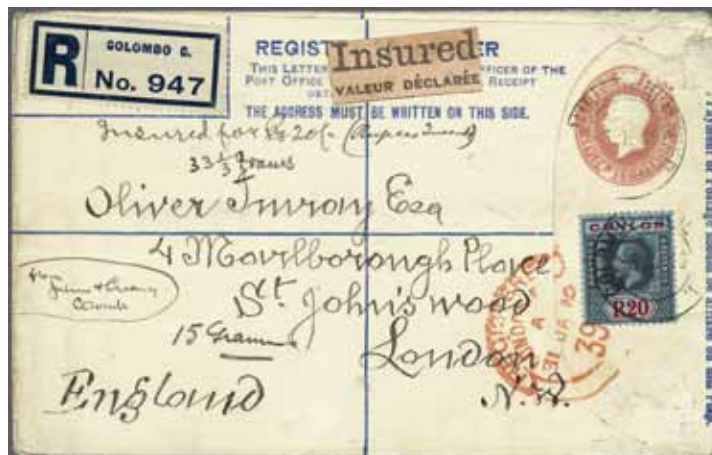 R
COLOMBO C.
No. 947
REGIST ER
Insured
VALEUR DÉCLARÉE
THIS LETTER FFICER OF THE
POST OFFICE RECEIPT
THE ADDRESS MUST BE WRITTEN ON THIS SIDE.
Insured for 20/-
33 1/3 francs
Oliver Imray Esq
4 Marlborough Place
St. John's wood
London
N.W.
England
15 Grams
from
Colombo
CEYLON
R20
31 JA 16